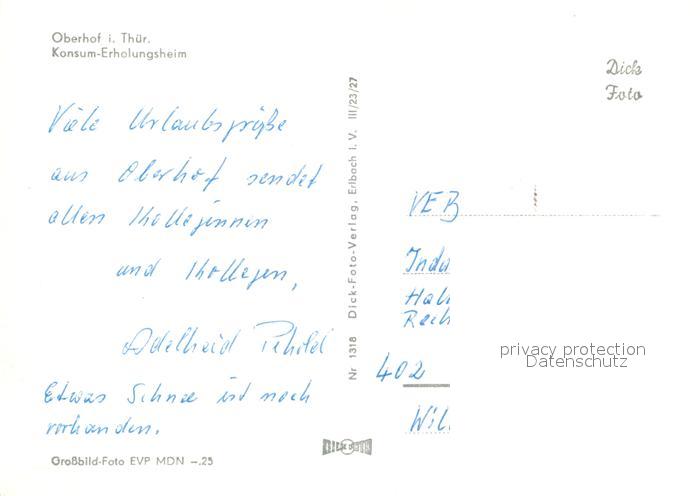 Oberhof i. Thür.
Konsum-Erholungsheim
Viele Urlaubsgrüße
aus Oberhof sendet
allen Kolleginnen
und Kollegen,
Adelheid
Etwas Schnee ist noch
vorhanden.
Großbild-Foto EVP MDN –.25
Nr 1318 Dick-Foto-Verlag, Erlbach i. V. III/23/27
Dick
Foto
VEB
Indu
Hal
Rech
402
Wil
privacy protection
Datenschutz